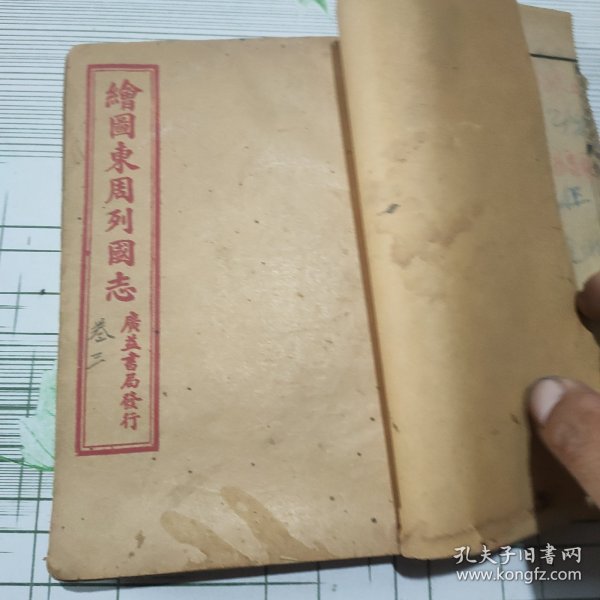 繪圖東周列國志
廣益書局發行
卷三
孔夫子旧書网
www.kongfz.com